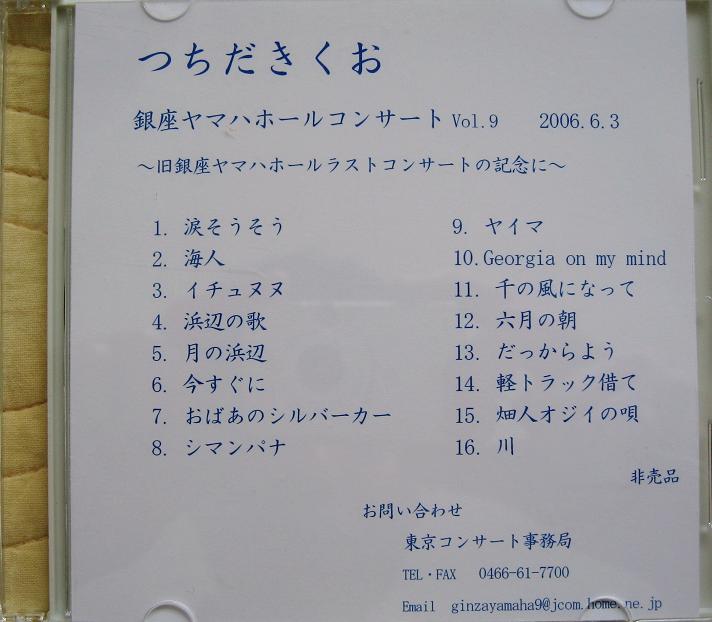 つちだきくお
銀座ヤマハホールコンサート Vol.9　2006.6.3
～旧銀座ヤマハホールラストコンサートの記念に～
1. 涙そうそう
2. 海人
3. イチュヌヌ
4. 浜辺の歌
5. 月の浜辺
6. 今すぐに
7. おばあのシルバーカー
8. シマンパナ
9. ヤイマ
10.Georgia on my mind
11. 千の風になって
12. 六月の朝
13. だっからよう
14. 軽トラック借て
15. 畑人オジイの唄
16. 川
非売品
お問い合わせ
東京コンサート事務局
TEL・FAX　0466-61-7700
Email　ginzayamaha9@jcom.home.ne.jp